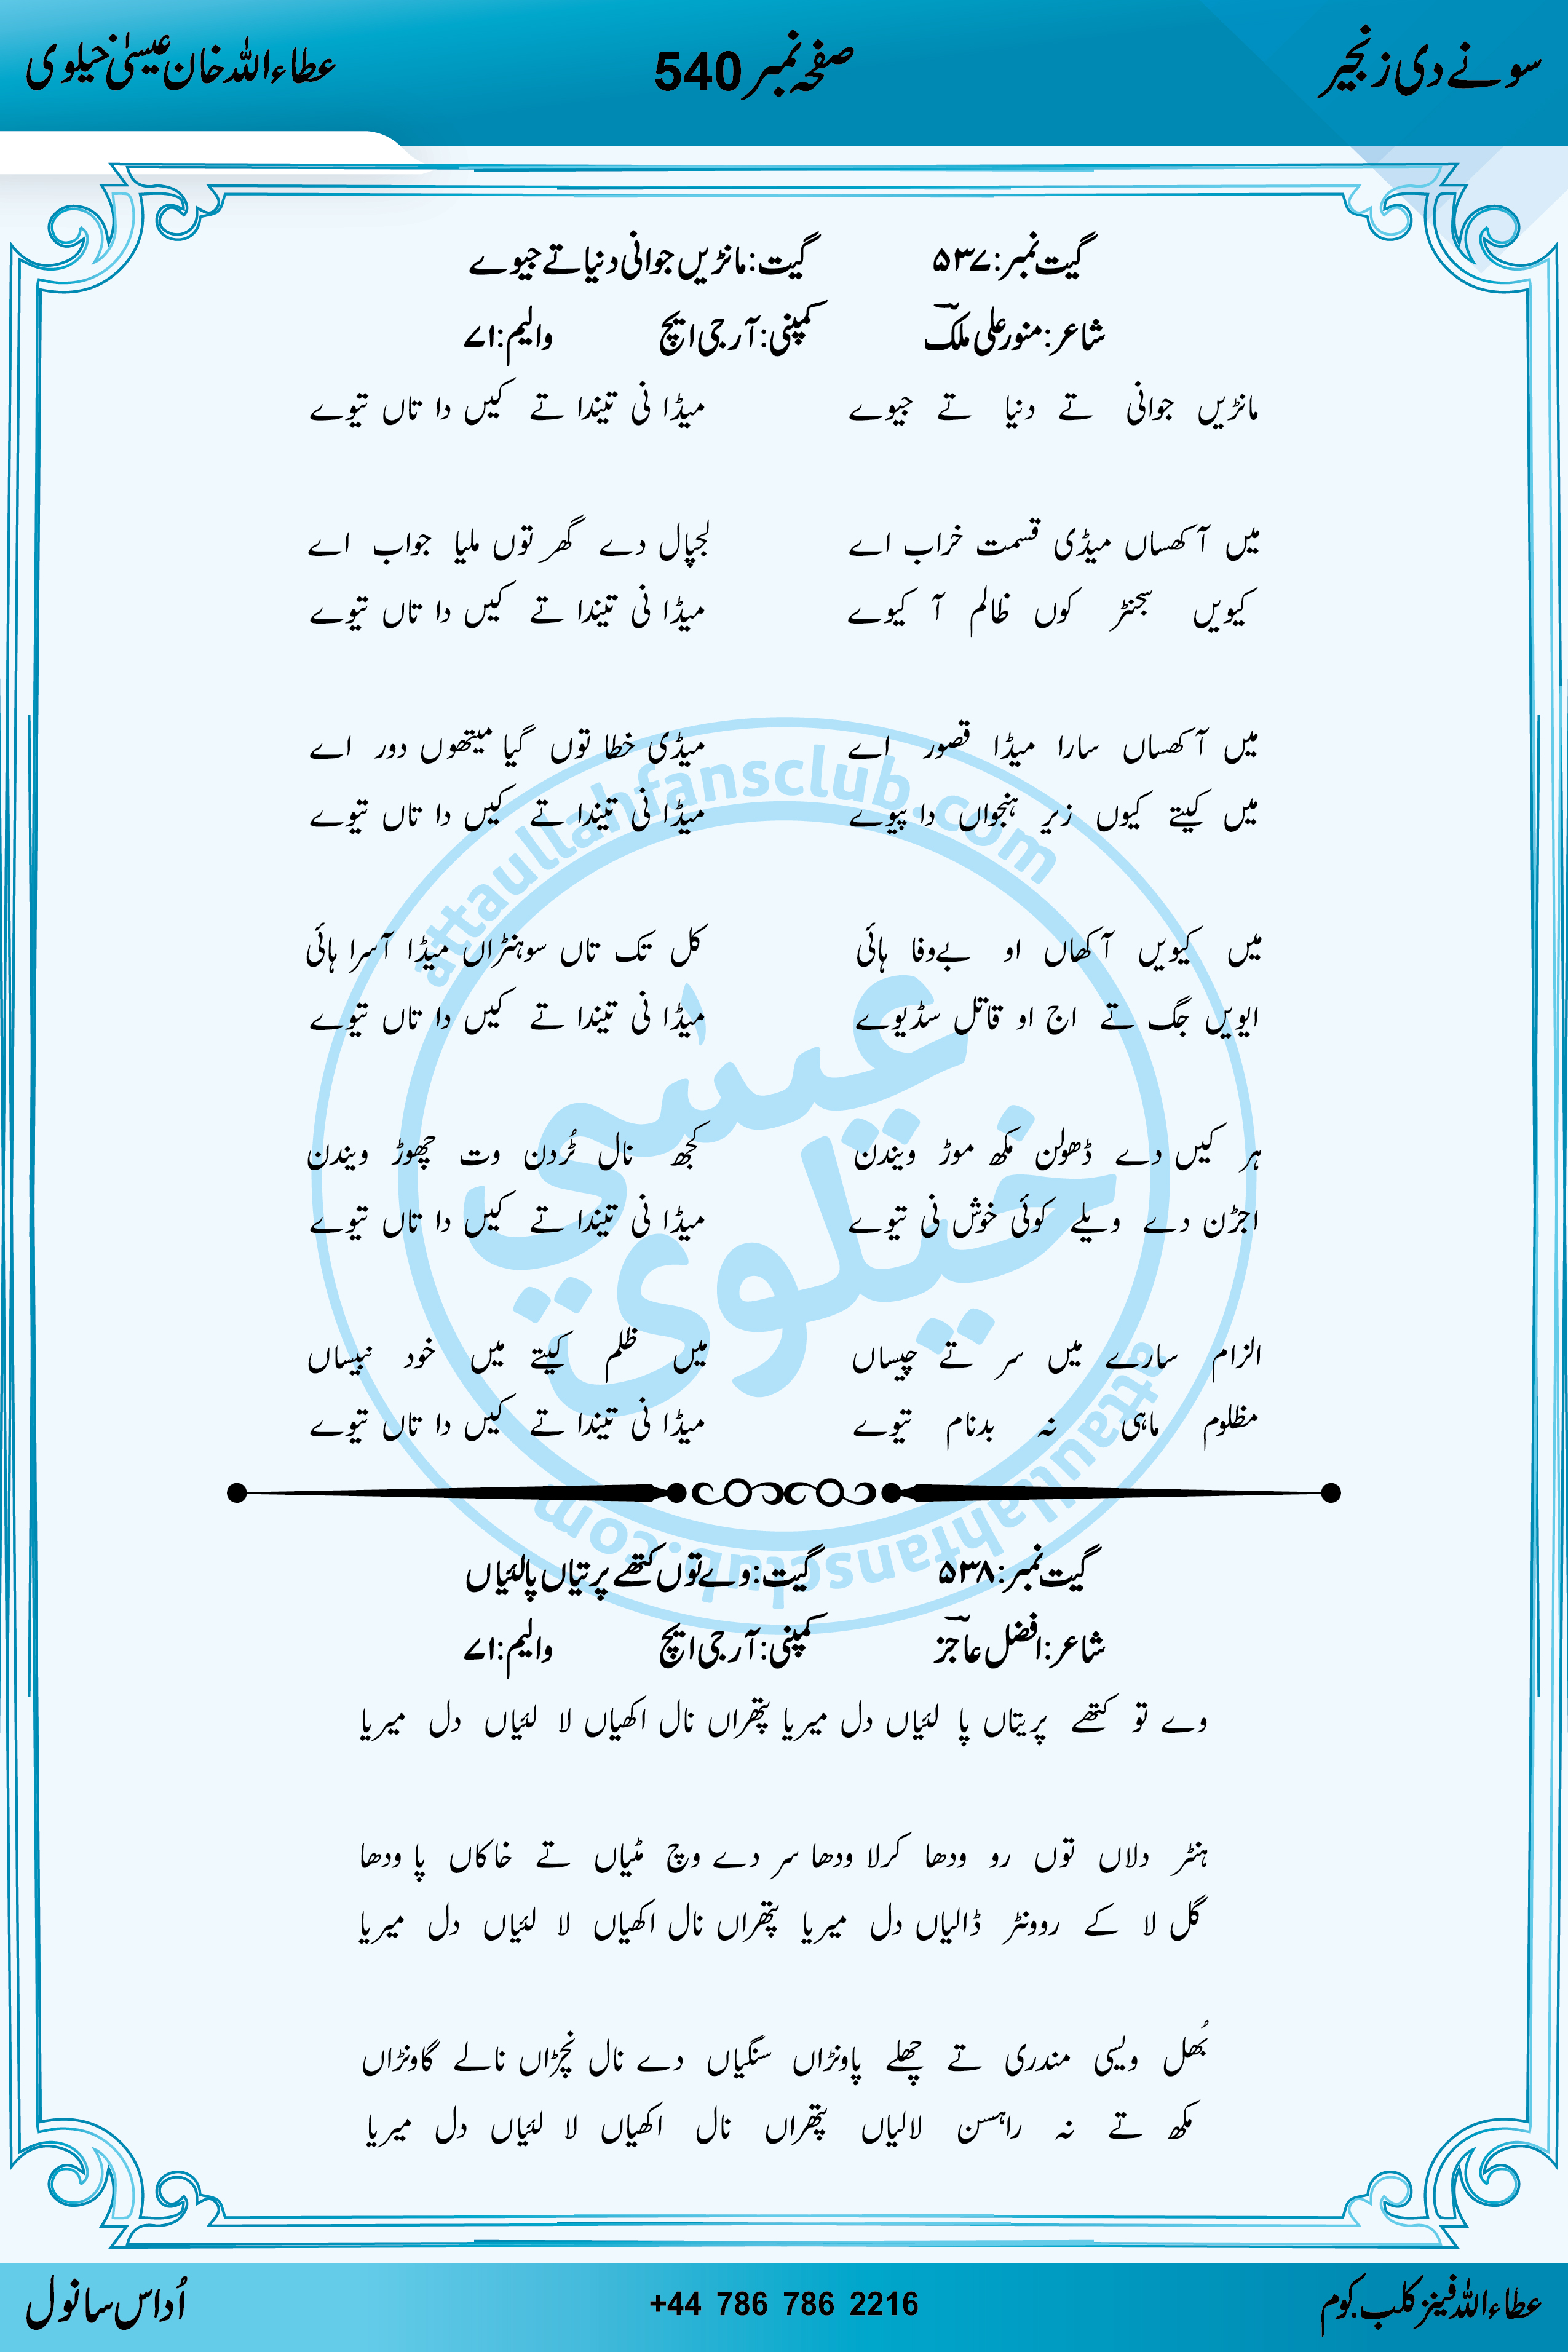 سونے دی زنجیر صفحہ نمبر 540 عطاء اللہ خان عیسیٰ خیلوی
گیت نمبر: ۵۳۷ گیت: مانڑیں جوانی دنیا تے جیوے
شاعر: منور علی ملک کمپنی: آر جی ایچ والیم: ۷۱
مانڑیں جوانی تے دنیا تے جیوے میڈا نی تیندا تے کیں دا تاں تیوے
میں آکھساں میڈی قسمت خراب اے لجپال دے گھر توں ملیا جواب اے
کیویں سجنڑ کوں ظالم آ کیوے میڈا نی تیندا تے کیں دا تاں تیوے
میں آکھساں سارا میڈا قصور اے میڈی خطا توں گیا میتھوں دور اے
میں کیتے کیوں زہر ہنجواں دا پیوے میڈا نی تیندا تے کیں دا تاں تیوے
میں کیویں آکھاں او بےوفا ہائی کل تک تاں سوہنڑاں میڈا آسرا ہائی
ایویں جگ تے اج او قاتل سڈیوے میڈا نی تیندا تے کیں دا تاں تیوے
ہر کیں دے ڈھولن مکھ موڑ ویندن کجھ نال ٹُردن وت چھوڑ ویندن
اجڑن دے ویلے کوئی خوش نی تیوے میڈا نی تیندا تے کیں دا تاں تیوے
الزام سارے میں سر تے چیساں میں ظلم کیتے میں خود نبیساں
مظلوم ماہی نہ بدنام تیوے میڈا نی تیندا تے کیں دا تاں تیوے
گیت نمبر: ۵۳۸ گیت: وے توں کتھے پرتیاں پا لئیاں
شاعر: افضل عاجز کمپنی: آر جی ایچ والیم: ۷۱
وے تو کتھے پریتاں پا لئیاں دل میریا پتھراں نال اکھیاں لا لئیاں دل میریا
ہنڑ دلاں توں رو ودھا کرلا ودھا سر دے وچ مٹیاں تے خاکاں پا ودھا
گل لا کے روونڑ ڈالیاں دل میریا پتھراں نال اکھیاں لا لئیاں دل میریا
بُھل ویسی مندری تے چھلے پاونڑاں سنگیاں دے نال نچڑاں نالے گاونڑاں
مکھ تے نہ راہسن لالیاں پتھراں نال اکھیاں لا لئیاں دل میریا
عطاء اللہ فینز کلب.کوم +44 786 786 2216 اُداس سانول
attaullahfansclub.com
عیسٰی
خیلوی
attaullahfansclub.com